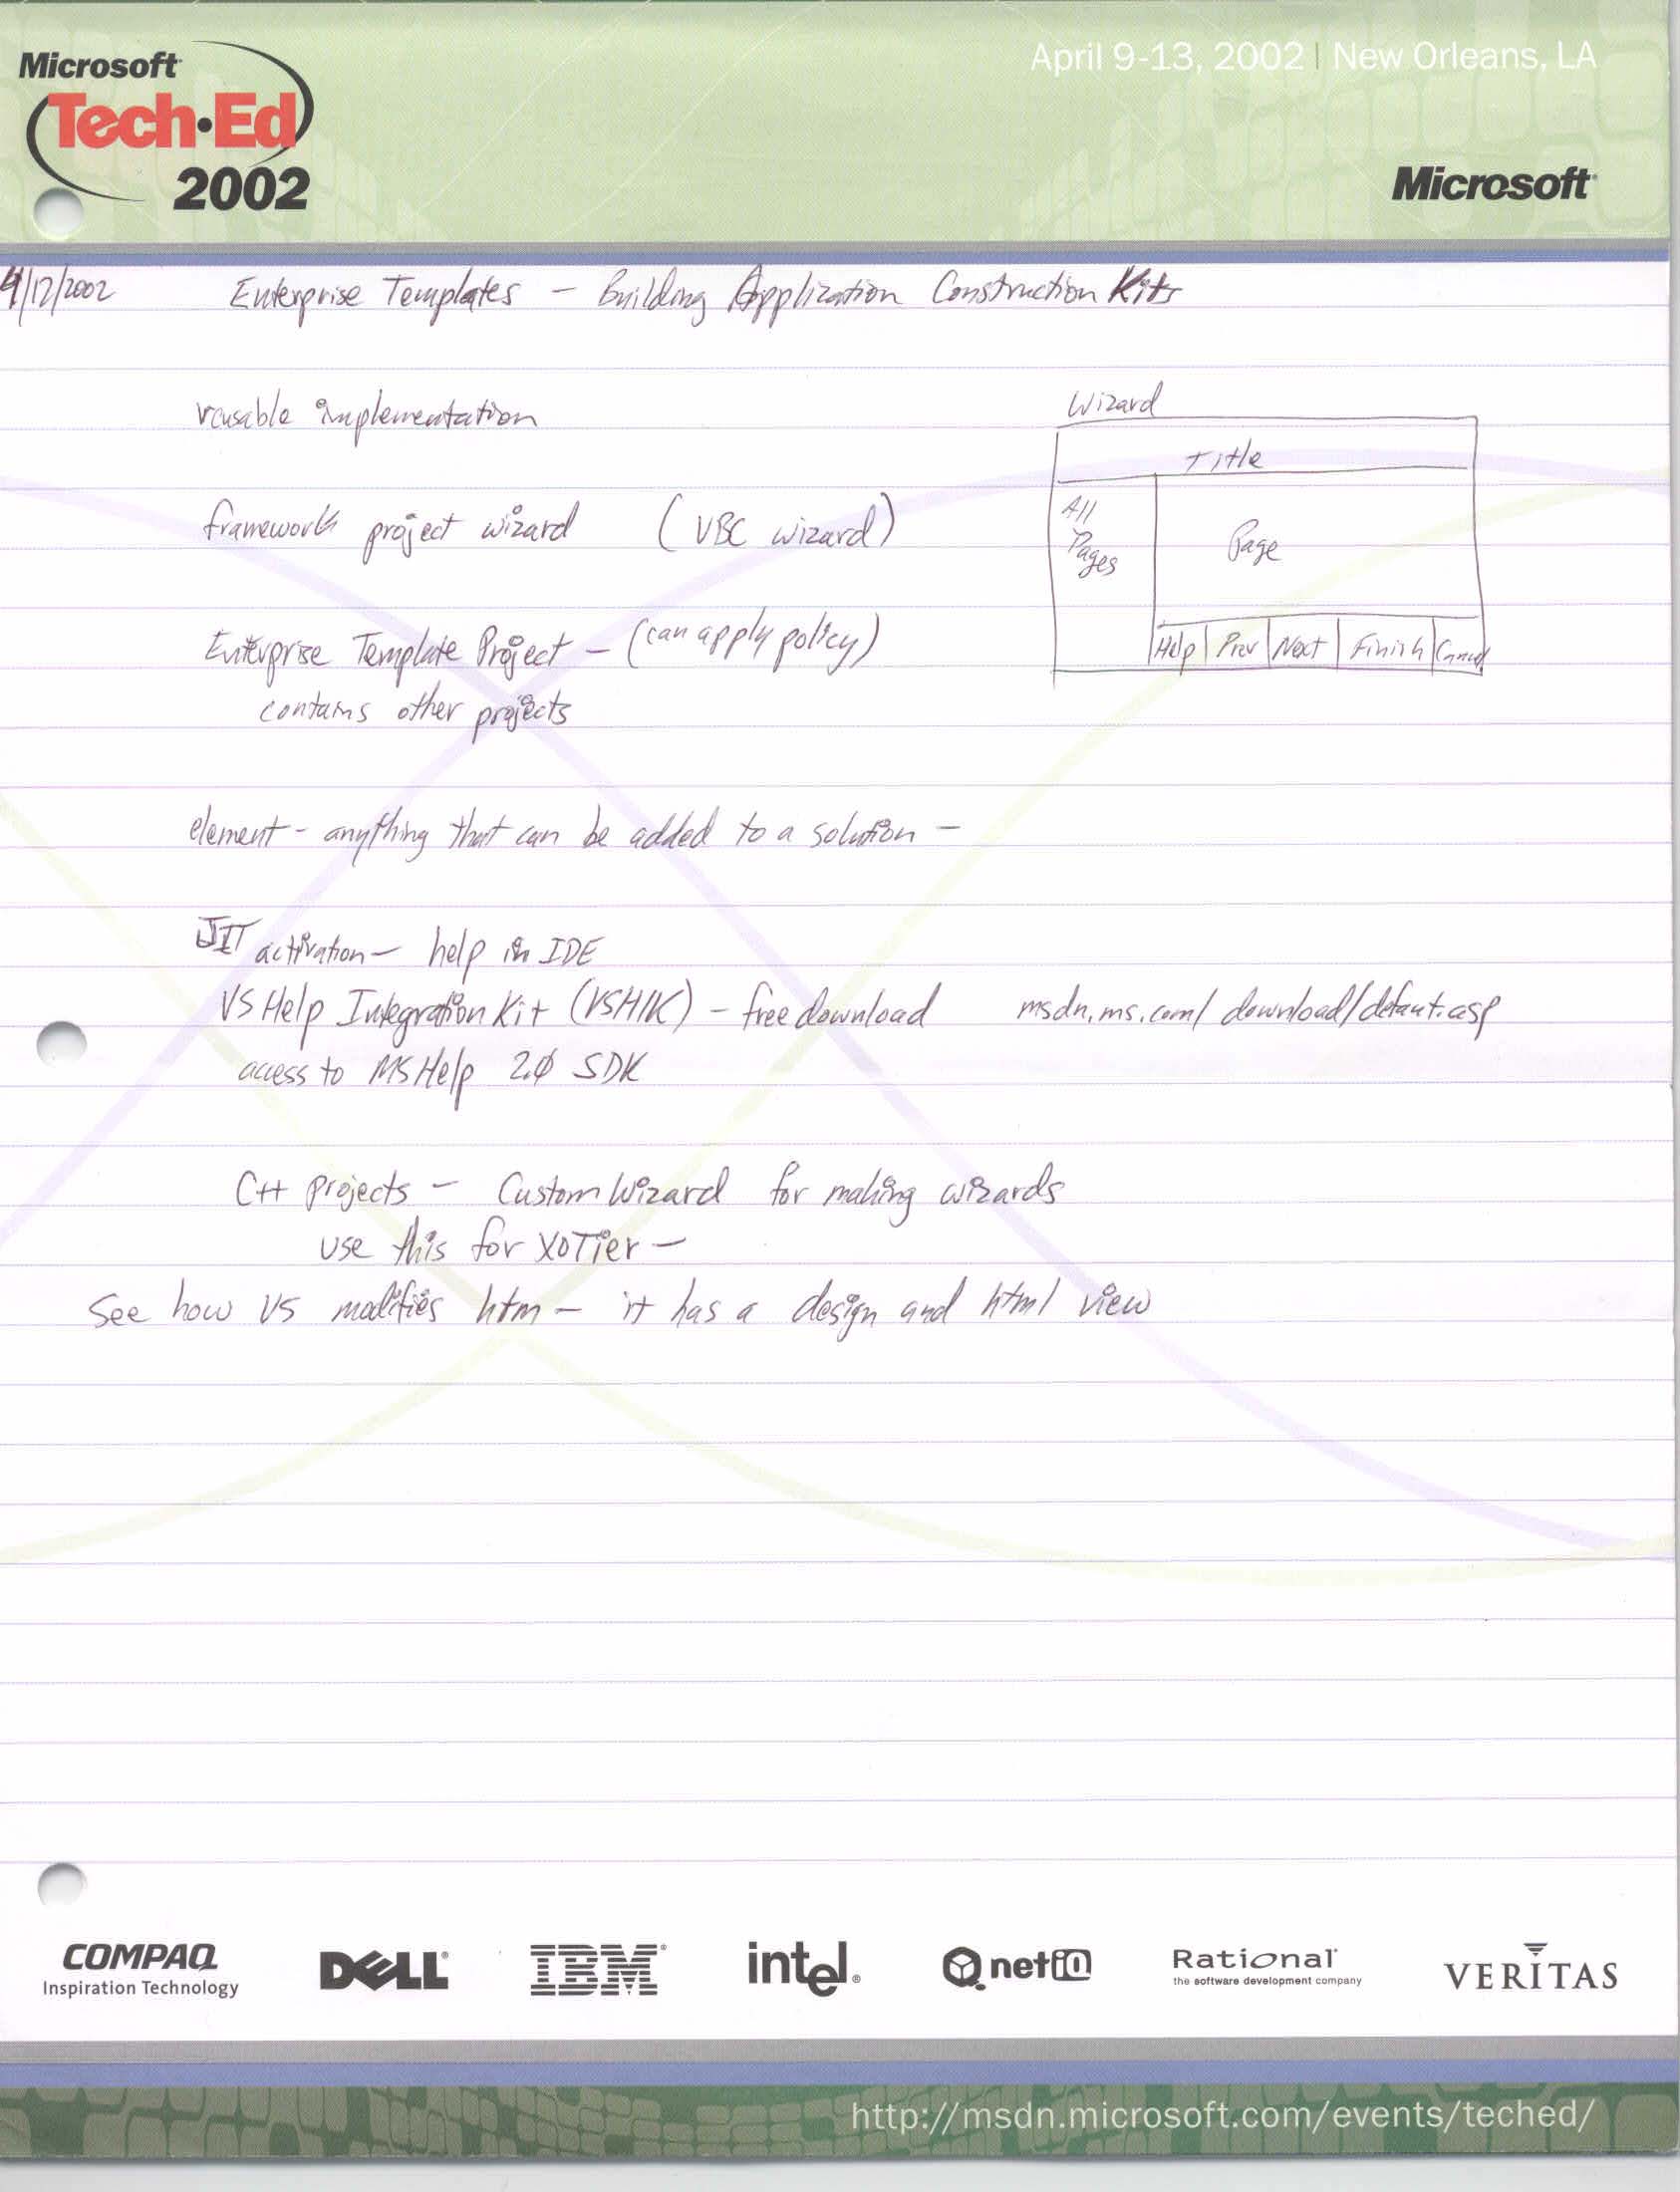 April 9-13, 2002 | New Orleans, LA
Microsoft
Tech·Ed
2002
Microsoft
4/12/2002 Enterprise Templates - Building Application Construction Kits
reusable implementation
Wizard
Title
All
Pages
Page
Help Prev Next Finish Cancel
framework project wizard (VBC wizard)
Enterprise Template Project - (can apply policy)
contains other projects
element - anything that can be added to a solution -
JIT activation - help in IDE
VS Help Integration Kit (VSHIK) - free download msdn.ms.com/download/defaut.asp
access to MS Help 2.0 SDK
C++ projects - Custom Wizard for making wizards
use this for XOTier -
See how VS modifies htm - it has a design and html view
COMPAQ
Inspiration Technology
DELL
IBM
intel
netiQ
Rational
the software development company
VERITAS
http://msdn.microsoft.com/events/teched/